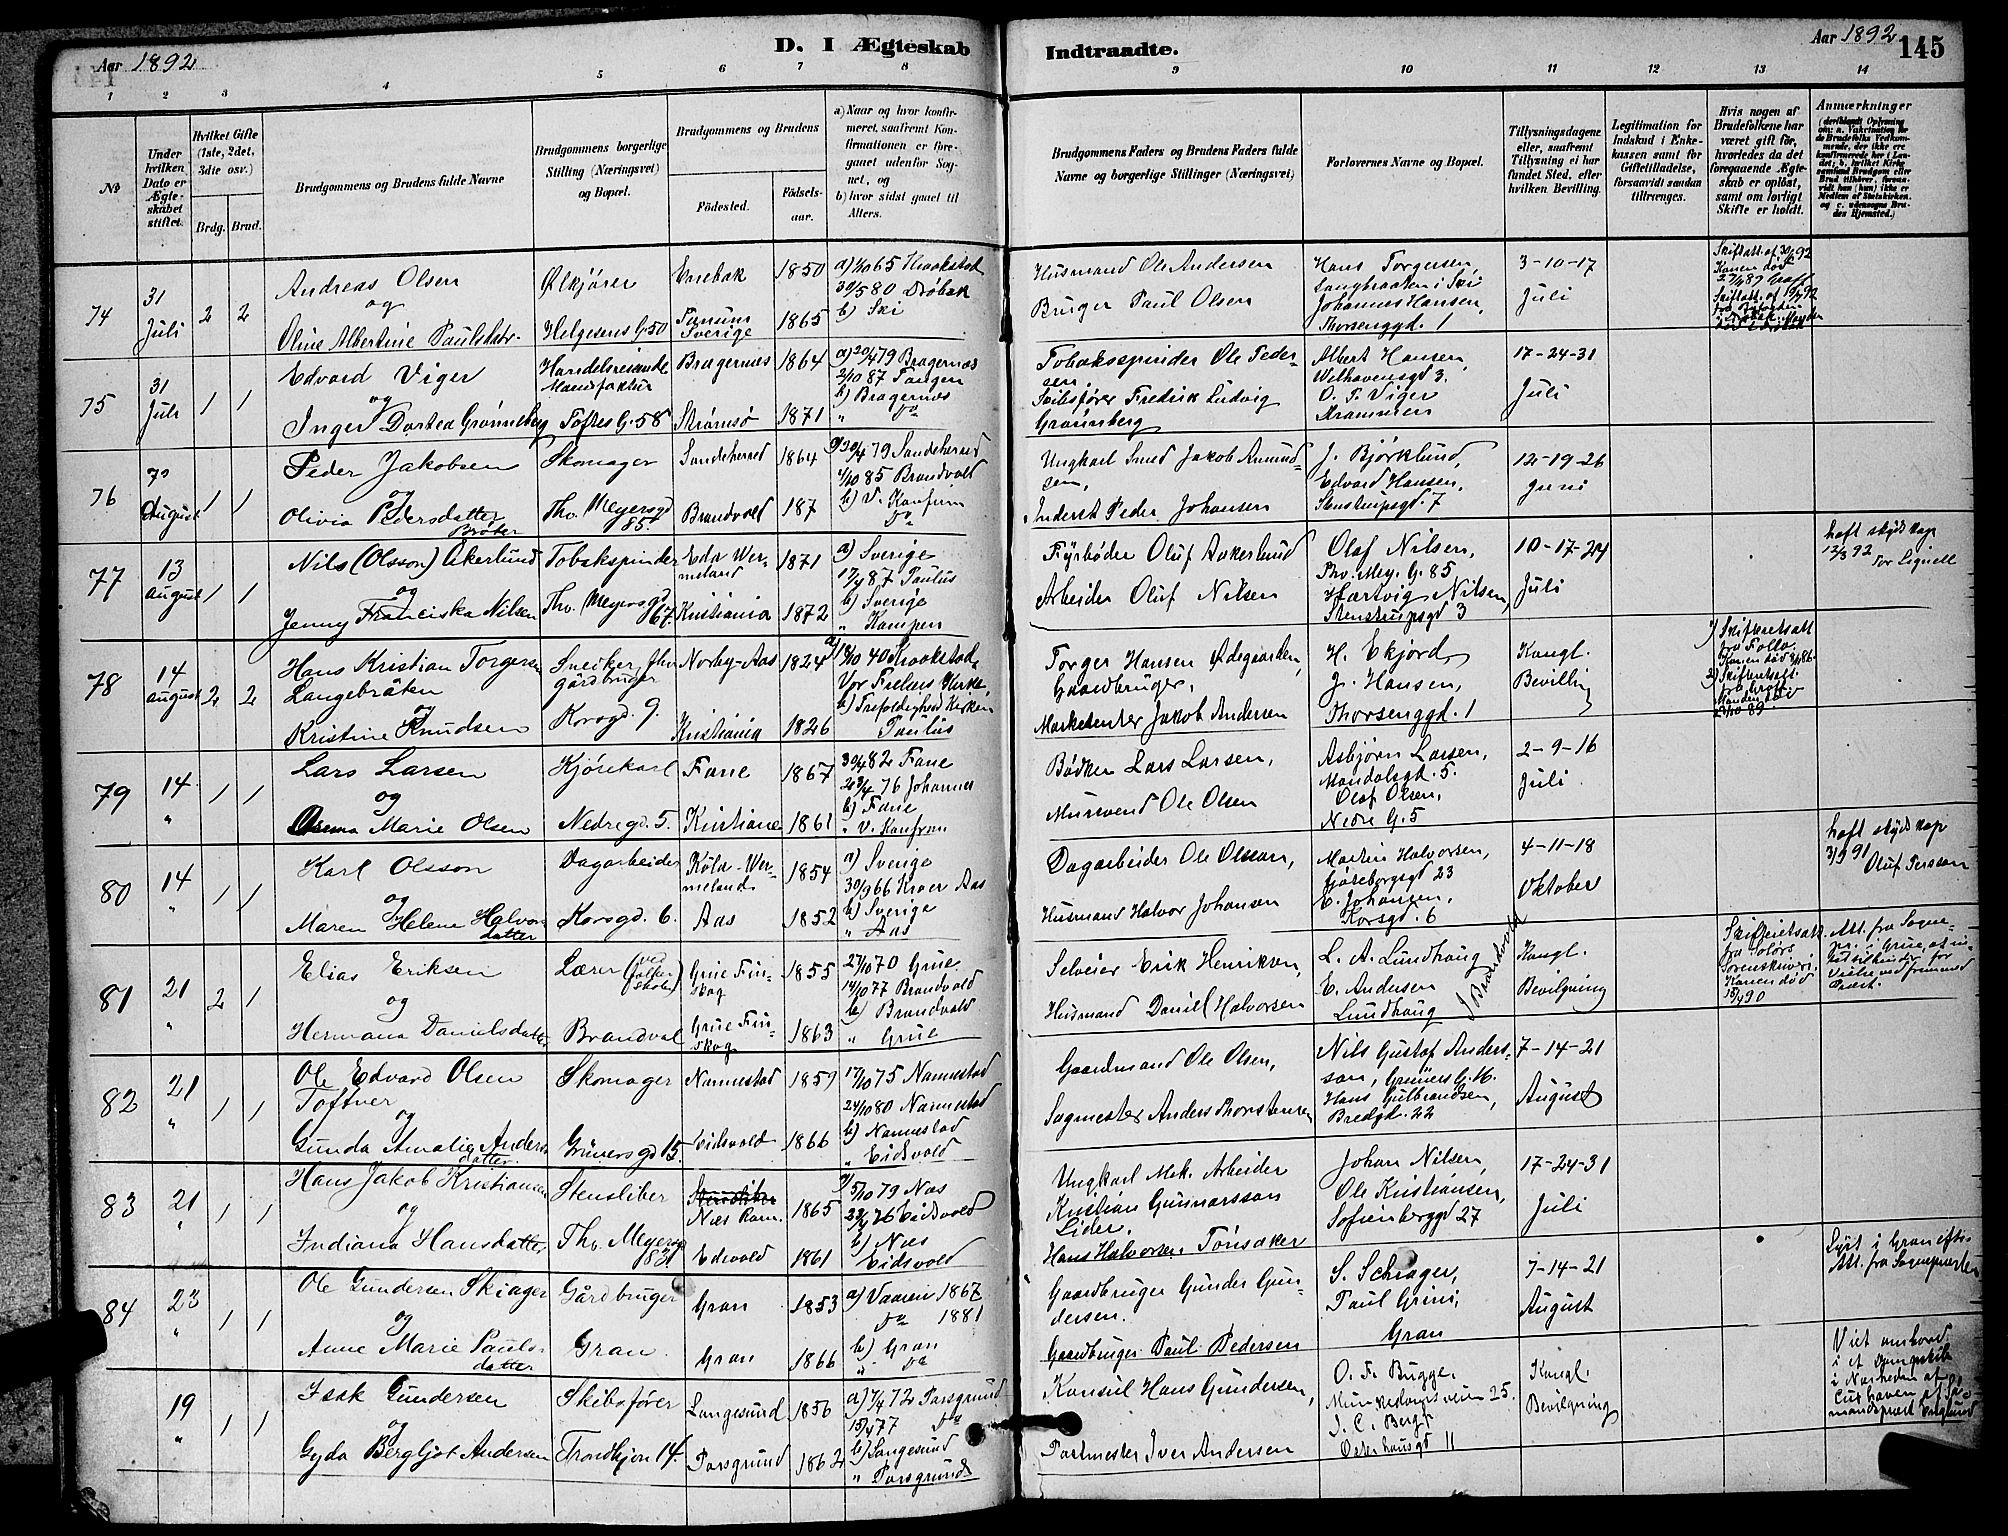 Aar 1892
D. I Ægteskab
Indtraadte.
Aar 1892
145
1 2 3 4 5 6 7 8 9 10 11 12 13 14
No
Under hvilken Dato er Ægteskabet stiftet.
Hvilket Gifte (1ste, 2det, 3die osv.)
Brdg. Brud.
Brudgommens og Brudens fulde Navne
Brudgommens borgerlige Stilling (Næringsvei) og Bopæl.
Brudgommens og Brudens
Fødested.
Fødselsaar.
a) Naar og hvor konfirmeret, saafremt Konfirmationen er foregaaet udenfor Sognet, og
b) hvor sidst gaaet til Alters.
Brudgommens Faders og Brudens Faders fulde Navne og borgerlige Stillinger (Næringsvei)
Forlovernes Navne og Bopæl.
Tillysningsdagene eller, saafremt Tillysning ei har fundet Sted, efter hvilken Bevilling.
Legitimation for Indskud i Enkekassen samt for Giftetilladelse, forsaavidt saadan tiltrænges.
Hvis nogen af Brudefolkene har været gift før, hvorledes da det foregaaende Ægteskab er opløst, samt om lovligt Skifte er holdt.
Anmærkninger
74
31 Juli
2 2
Andreas Olsen
og
Oline Albertine Paulsdatr.
Ølkjører
Helgesens G. 50
Enebak 1850
Sverige 1865
a) 1/10 65 Kraakstad
30/5 80 Drøbak
b) Ski
Husmand Ole Andersen
Bruger Paul Olsen
Hans Torgersen,
Langbraaten i Ski
Johannes Hansen,
Thorsenggd. 1
3-10-17
Juli
75
31 Juli
1 1
Edvard Viger
og
Inger Dortea Grønneberg
Handelsreisende
Manufaktur
Toftes G. 58
Bragernæs 1864
Strømsø 1871
a) 20/4 79 Bragernæs
2/10 87 Tangen
b) Bragernæs
" do
Tobaksspinder Ole Pedersen
Skibsfører Fredrik Ludvig
Grønnberg
Albert Hansen,
Welhavensgd 3.
O. P. Viger
Drammen
17-24-31
Juli
76
August
1 1
Peder Jakobsen
og
Olivia Pedersdatter
Bråten
Skomager
Thv. Meyersgd
85
Sandeherred 1864
Brandvold 187
a) 20/4 79 Sandeherred
4/10 85 Brandvold
b) V. Konfirm
do
Ungkarl Smed Jakob Amundsen,
Inderst Peder Johansen
J. Bjørklund,
Edvard Hansen,
Stenstrupsgd. 7
12-19-26
Juni
77
13 August
1 1
Nils (Olsson) Akerlund
og
Jenny Franciska Nilsen
Tobakspinder
Thv. Meyersgd
67
Eda Wermeland 1871
Kristiania 1872
a) Sverige
17/4 87 Paulus
b) Sverige
" Kampen
Fyrbøder Oluf Aakerlund
Arbeider Oluf Nilsen
Olaf Nilsen,
Thv. Mey. G. 85
Hartvig Nilsen,
Stenstrupsgd 3
10-17-24
Juli
haft skydskap
12/8 92
Tor Lignell
78
14 August
2 2
Hans Kristian Torgersen
Langebråten
og
Kristine Knudsen
Snedker, fhv
gårdbruger
Korsgd. 9.
Norby-Aas 1824
Kristiania 1826
a) 18/10 40 Kraakstad,
Vor Frelsers Kirke,
b) Trefoldighed Kirken
Paulus
Torger Hansen Ødegaarden,
Gaardbruger,
Marketenter Jakob Andersen
H. Ekjord,
J. Hansen,
Thorsenggd. 1
Kongl.
Bevilling
79
14 "
1 1
Lars Larsen
og
Marie Olsen
Kjørekarl
Nedregd. 5.
Fane 1867
Kristiania 1861
30/4 82 Fane
23/4 76 Johannes
b) Fane
" V. Konfirm
Bødker Lars Larsen,
Mursvend Ole Olsen
Asbjørn Larsen,
Mandalsgd. 5.
Olaf Olsen,
Nedre G. 5
2-9-16
Juli
80
14 "
1 1
Karl Olsson
og
Maren Helene Halvorsdatter
Dagarbeider
Korsgd. 6.
Wermeland 1854
Aas 1852
a) Sverige
30/9 66 Kroer Aas
b) Sverige
" Aas
Dagarbeider Ole Olsson,
Husmand Halvor Johansen
Martin Halvorsen,
Gøteborgsgd 23
E. Johansen,
Korsgd. 6
4-11-18
Oktober
haft skydskap
3/9 91
Oluf Persson
81
21 "
2 1
Elias Eriksen
og
Hermana Danielsdatter
Lærer (ved folkeskole)
Brandval
Grue Finskog 1855
Grue Finskog 1863
27/10 70 Grue
14/10 77 Brandvold
b) Brandvold
" Grue
Selveier Erik Henriksen,
Husmand Daniel Halvorsen
L. A. Lundhaug
E. Andersen
Lundhaug
Kongl.
Bevilgning
Skifteretsatt.
fra Solørs
Sorenskriveri
Konen død
15/4 90
82
21 "
1 1
Ole Edvard Olsen
Toftner
og
Gunda Amalie Andersdatter
Skomager
Grünersgd 15.
Nannestad 1859
Eidsvold 1866
17/10 75 Nannestad
24/10 80 Nannestad
b) Nannestad
" Eidsvold
Gaardmand Ole Olsen,
Sagmester Anders Thorstensen
Nils Gustaf Andersson, Grüners G. 16.
Hans Gulbrandsen,
Bredgd. 22
7-14-21
August
83
21 "
1 1
Hans Jakob Kristiansen
og
Indiana Hansdatter,
Stensliber
Thv. Meyersg
Næs Rom. 1865
Edsvold 1861
a) 5/10 79 Næs
Eidsvold
b) Næs
Eidsvold
Ungkarl Mek. Arbeider
Kristian Gunnarsson
Lider,
Hans Halvorsen Tønsaker
Johan Nilsen,
Ole Kristiansen,
Sofienberggd 27
17-24-31
Juli
84
23 "
1 1
Ole Gundersen Skiager
og
Anne Marie Paulsdatter
Gårdbruger
Gran
Gran 1853
Gran 1866
a) Vaaren 1867
do 1881
b) Gran
" do
Gaardbruger Gunder Gundersen.
Gaardbruger Paul Pedersen
S. Schiager,
Paul Grini,
Gran
7-14-21
August
Lyst i Gran efter
Att. fra Sognepresten
19 "
1 1
Isak Gundersen
og
Gyda Bergljot Andersen
Skibsfører
Trondhjem 14.
Langesund 1856
Porsgrund 1862
a) 7/4 72 Porsgrund
15/4 77 do
b) Langesund
" Porsgrund
Konsul Hans Gundersen,
Postmester Iver Andersen
O. F. Bugge,
Munkedamsveien 25.
J. C. Berg
Osterhausgd 11
Kongl.
Bevilgning
Viet ombord
i et Dampskib
i Nærheden af
Cuxhaven af Sømandsprest Englund